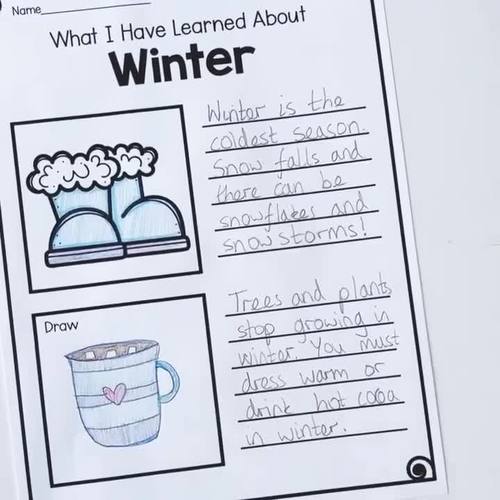 Name
What I Have Learned About
Winter
Winter is the
coldest season.
Snow falls and
there can be
snowflakes and
snowstorms!
Draw
Trees and plants
stop growing in
winter. You must
dress warm or
drink hot cocoa
in winter.